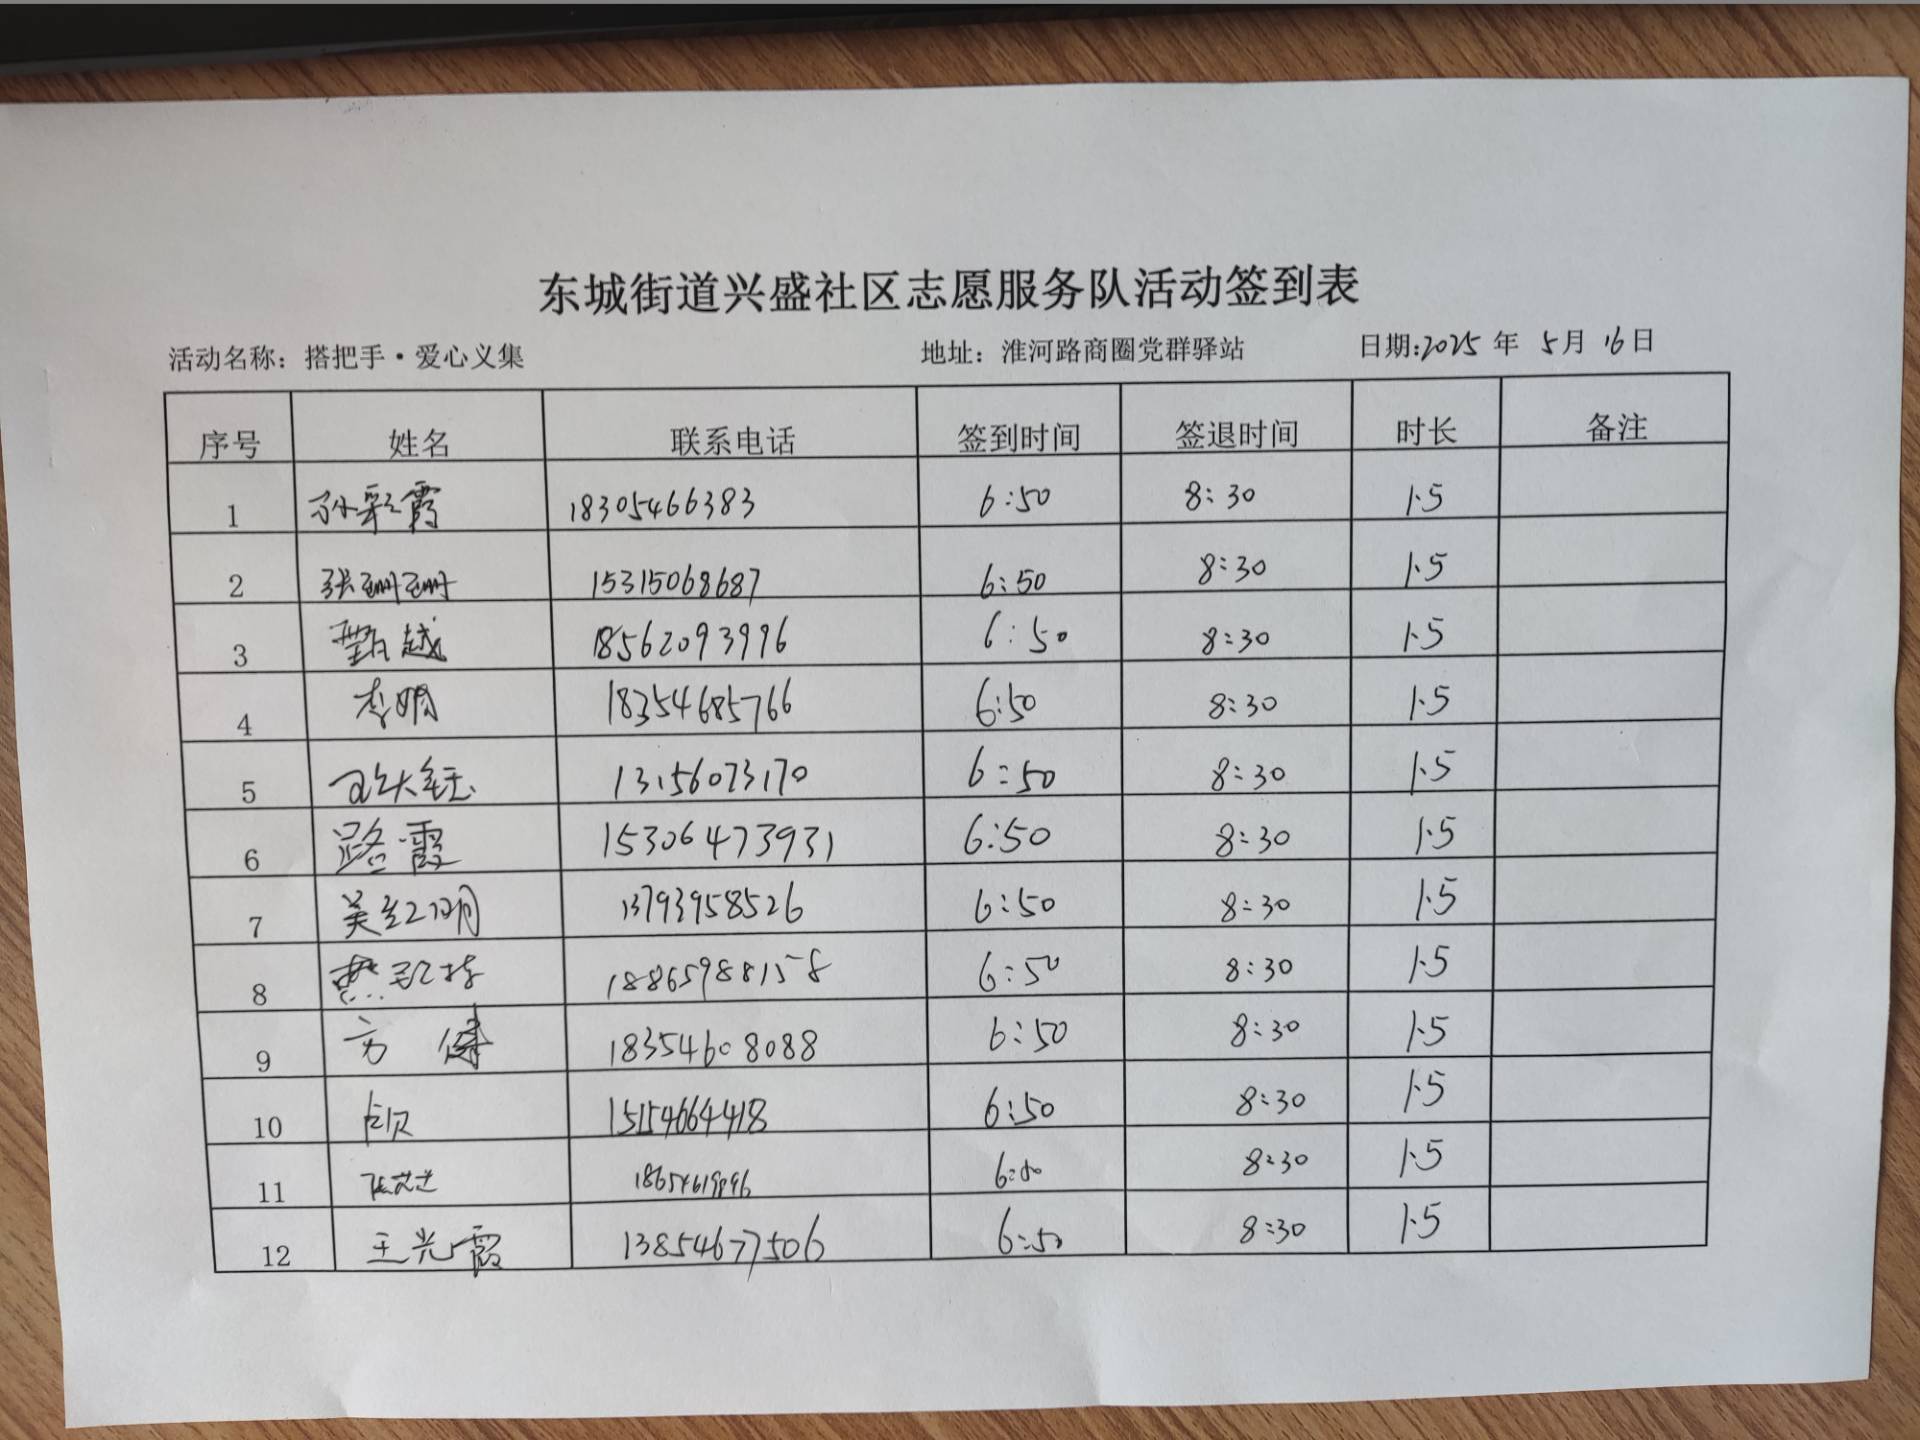 东城街道兴盛社区志愿服务队活动签到表
活动名称：搭把手·爱心义集 地址：淮河路商圈党群驿站 日期:2025年 5月 16日
序号 姓名 联系电话 签到时间 签退时间 时长 备注
1 孙彩霞 18305466383 6:50 8:30 1.5
2 张珊珊 15315068687 6:50 8:30 1.5
3 甄越 18562093996 6:50 8:30 1.5
4 李娟 18354685766 6:50 8:30 1.5
5 13156073170 6:50 8:30 1.5
6 路霞 15306473931 6:50 8:30 1.5
7 吴红明 13793958526 6:50 8:30 1.5
8 18865988158 6:50 8:30 1.5
9 方健 18354608088 6:50 8:30 1.5
10 15154664418 6:50 8:30 1.5
11 6:50 8:30 1.5
12 王光霞 13854677506 6:50 8:30 1.5